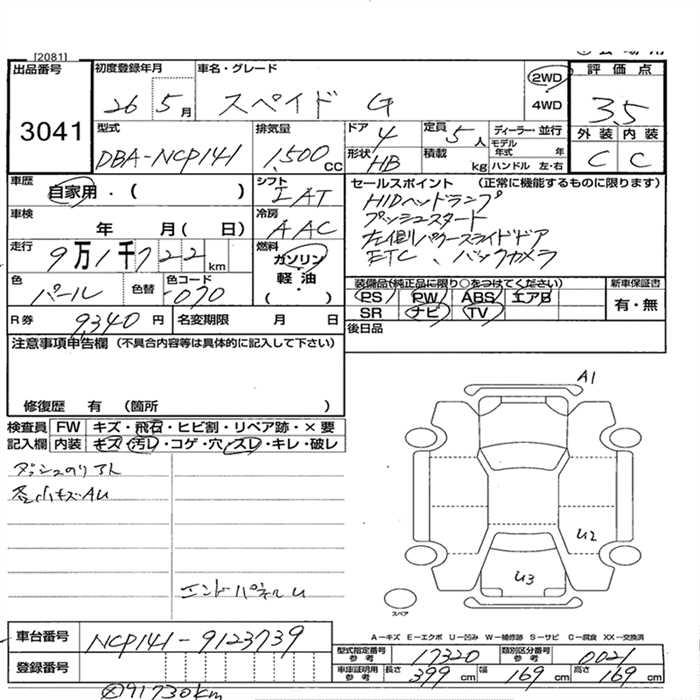 [2081]
出品番号 初度登録年月 車名・グレード 2WD 評価点
3041 26 5月 スペイド G 4WD 3.5
型式 排気量 ドア 4 定員 5人 ディーラー・並行 外装 内装
DBA-NCP141 1,500cc 形状 HB 積載 kg モデル年式 年 C C
ハンドル 左・右
車歴 自家用・( ) シフト IAT セールスポイント (正常に機能するものに限ります)
車検 年 月( 日) 冷房 AAC HIDヘッドランプ
プッシュスタート
走行 9万1千722km 燃料 ガソリン 左側パワースライドドア
軽油 ETC、バックカメラ
・( )
色 パール 色替 色コード 070 装備品(純正品に限り○をつけてください) 新車保証書
PS PW ABS エアB 有・無
R券 9,340円 名変期限 月 日 SR ナビ TV
後日品
注意事項申告欄 (不具合内容等は具体的に記入して下さい)
修復歴 有 (箇所 )
検査員 FW キズ・飛石・ヒビ割・リペア跡・×要
記入欄 内装 キズ・汚レ・コゲ・穴・スレ・キレ・破レ
ダッシュのりアト
小キズAU
エンドパネルU
A1
U2
U3
スペア
A-キズ E-エクボ U-凹み W-補修跡 S-サビ C-腐食 XX-交換済
車台番号 NCP141-9123739
登録番号
型式指定番号参考 17320 類別区分番号参考 0021
車庫証明用参考 長さ 399cm 幅 169cm 高さ 169cm
91730km